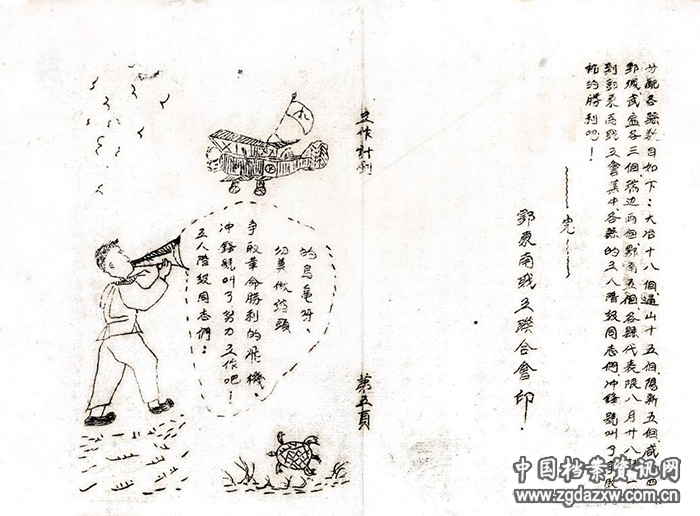 各縣数目如下：大冶十八個通山十五個陽新五個咸四
鄂城武 各三個瑞边兩個鄂南五個各縣代表限八月廿八
到鄂東南职工會集中，各縣的工人階級同志們，冲鋒號叫了
的勝利吧！
完
鄂東南职工聯合會印．
工作計划
第五頁
工人階級同志們：
冲鋒號叫了努力工作吧！
争取革命勝利的飛機、
切莫做 頭
的烏龜呀、
中国档案资讯网
www.zgdazxw.com.cn